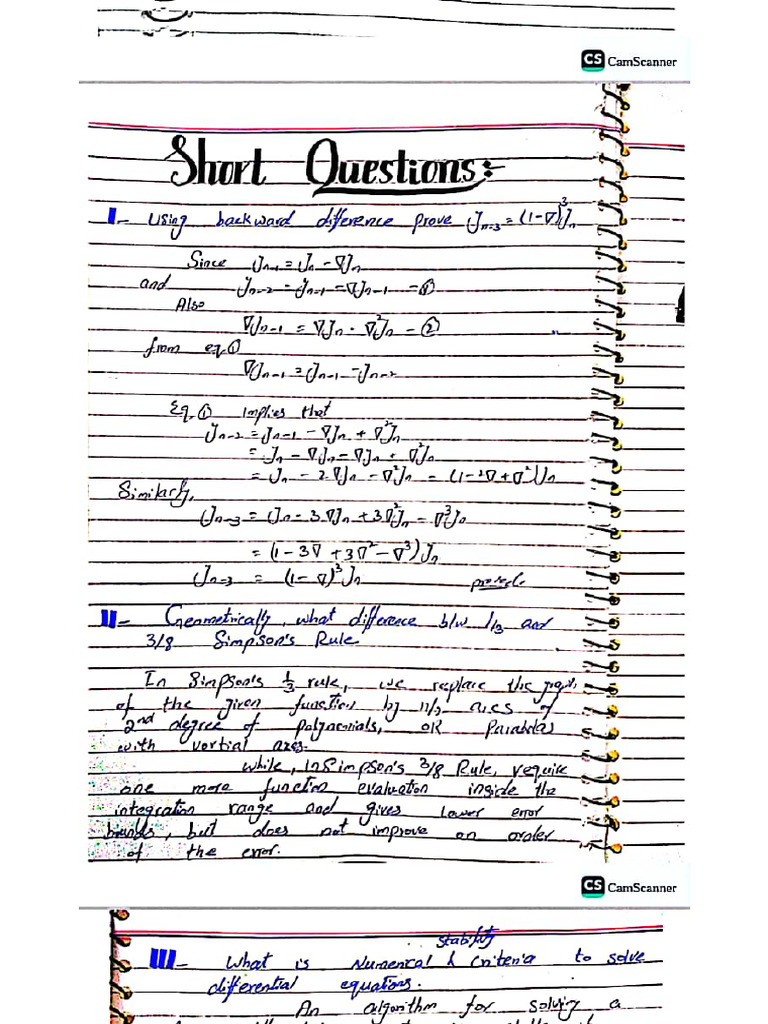 CS CamScanner
Short Questions:-
I- Using backward difference prove yₙ₋₃ = (1-∇)³yₙ
Since yₙ₋₁ = yₙ - ∇yₙ
and yₙ₋₂ = yₙ₋₁ = ∇yₙ₋₁ - ①
Also
∇yₙ₋₁ = ∇yₙ - ∇²yₙ - ②
from eq ①
∇yₙ₋₁ = yₙ₋₁ - yₙ₋₂
Eq. ① implies that
yₙ₋₂ = yₙ₋₁ - ∇yₙ + ∇²yₙ
= yₙ - ∇yₙ - ∇yₙ + ∇²yₙ
= yₙ - 2∇yₙ - ∇²yₙ = (1-2∇+∇²)yₙ
Similarly,
yₙ₋₃ = yₙ - 3∇yₙ + 3∇²yₙ - ∇³yₙ
= (1-3∇+3∇²-∇³)yₙ
yₙ₋₃ = (1-∇)³yₙ proved.
II- Geometrically, what difference b/w 1/3 and
3/8 Simpson's Rule.
In Simpson's 1/3 rule, we replace the
of the given function by n/2 arcs of
2nd degree of polynomials, OR Parabolas
with vertial axes.
while, In Simpson's 3/8 Rule, require
one more function evaluation inside the
integration range and gives lower error
bounds, but does not improve an order
of the error.
CS CamScanner
stability
III- What is Numerical & Criteria to solve
differential equations.
An algorithm for solving a